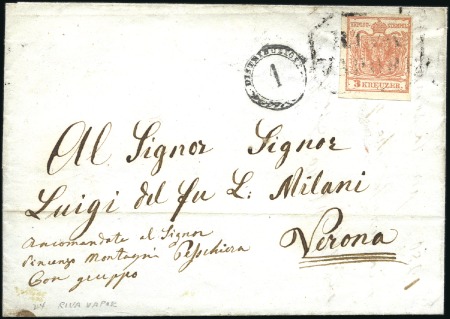 DISTRIBUZIONE
1
RIVA
VAPOR
3 KREUZER.
Al Signor Signor
Luigi del fu L. Milani
Verona
Ancomandate al Signor
Vincenzo Montagni Peschiera
Con gruppo
RIVA VAPOR